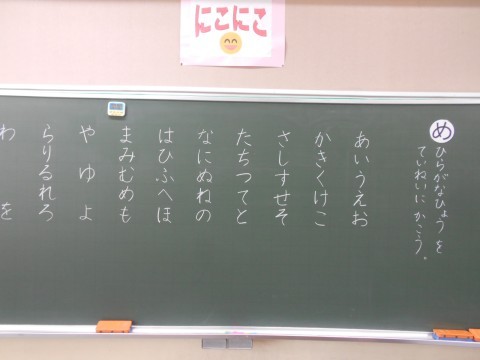 にこにこ
め
ひらがなひょうを
ていねいに かこう。
あいうえお
かきくけこ
さしすせそ
たちつてと
なにぬねの
はひふへほ
まみむめも
や ゆ よ
らりるれろ
わ を